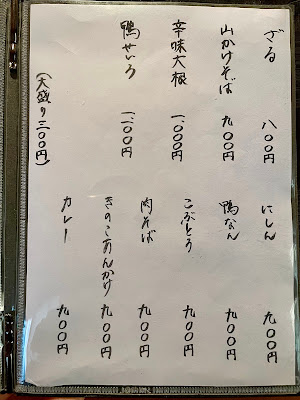 ざる 八〇〇円
山かけそば 九〇〇円
辛味大根 一、〇〇〇円
鴨せいろ 一、〇〇〇円
(大盛り三〇〇円)
にしん 九〇〇円
鴨なん 九〇〇円
こぶとろ 九〇〇円
肉そば 九〇〇円
きのこあんかけ 九〇〇円
カレー 九〇〇円